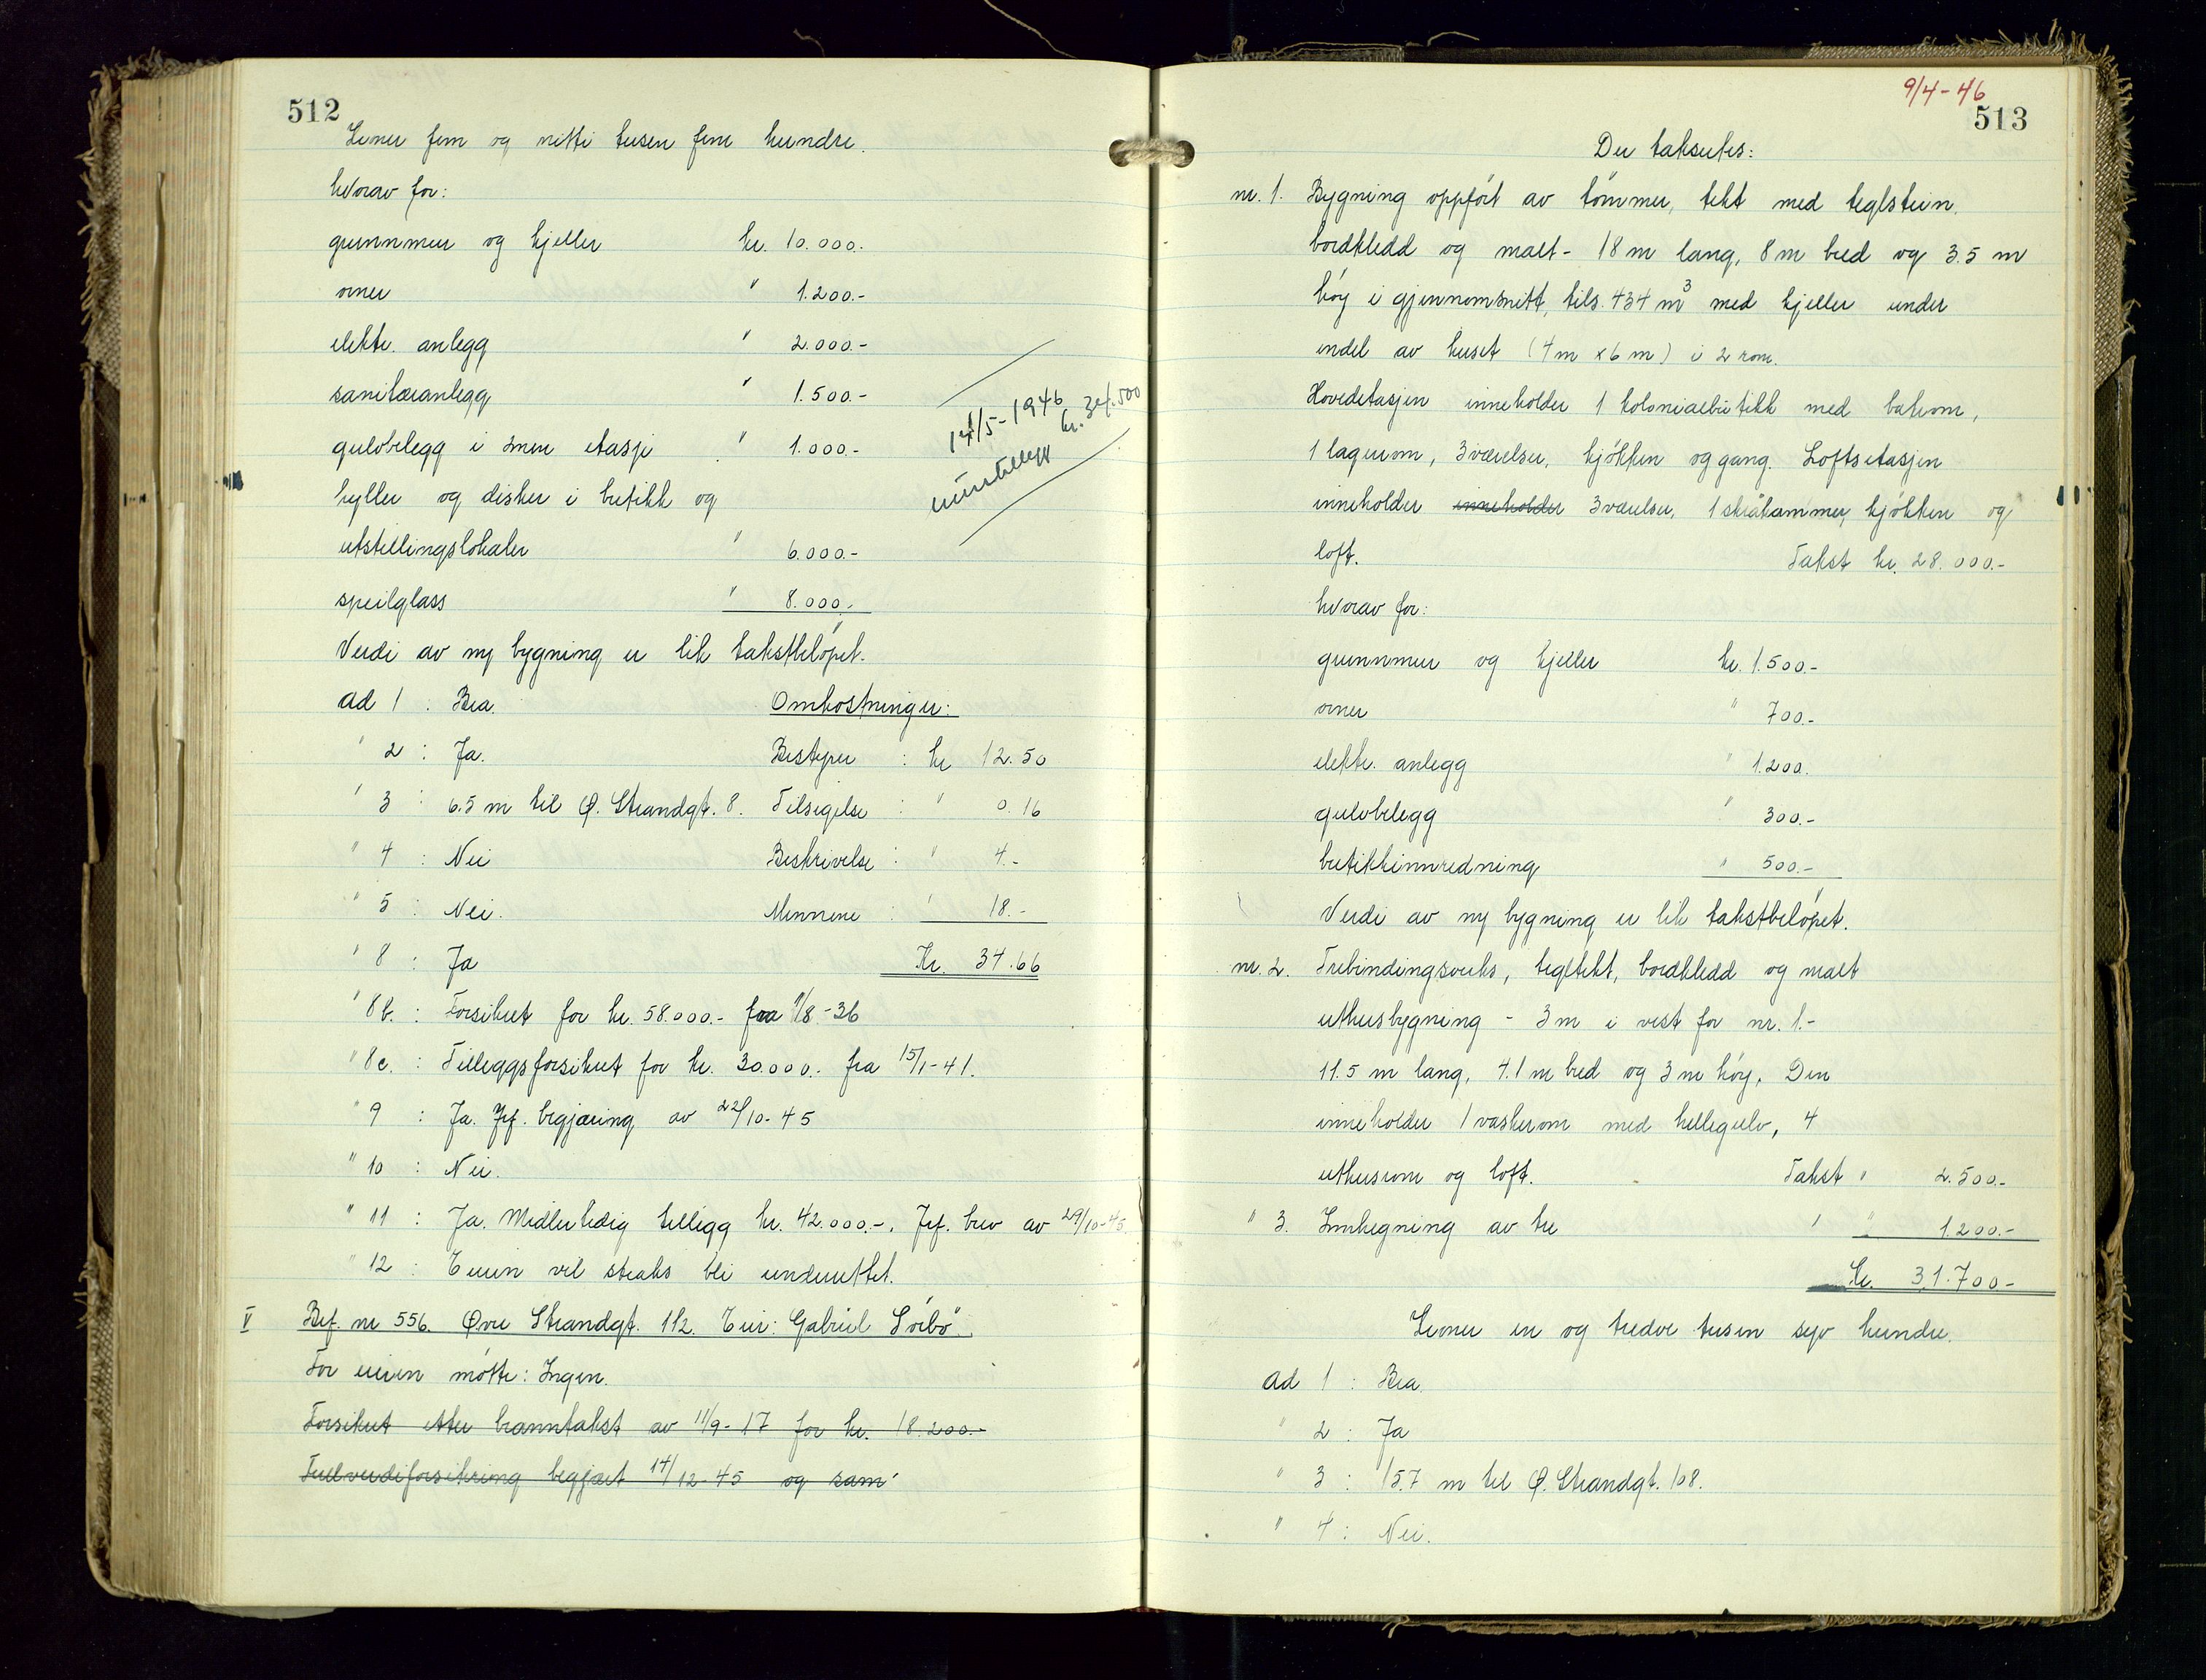 512
Kroner fem og nitti tusen fem hundre.
hvorav for:
grunnmur og kjeller kr. 10.000.-
ovner " 1.200.-
elektr. anlegg " 2.000.-
sanitæranlegg " 1.500.-
gulvbelegg i 2nen etasje " 1.000.-
hyller og disker i butikk og
utstillingslokaler " 6.000.-
speilglass " 8.000.-
14/5-1946 kr. 34.500
Verdi av ny bygning er lik takstbeløpet.
ad 1 : Bra. Omkostninger:
" 2 : Ja. Bestyrer : kr 12.50
" 3 : 6.5 m til Ø. Strandgt. 8. Tilsigelse : " 0.16
" 4 : Nei Beskrivelse : " 4.-
" 5 : Nei. Mennene : " 18.-
" 8 : Ja Kr. 34.66
" 8b. : Forsikret for kr. 58.000.- fra 1/8-36
" 8c. : Tilleggsforsikret for kr. 30.000.- fra 15/1-41.
" 9 : Ja. Jrf. begjæring av 22/10-45
" 10 : Nei.
" 11 : Ja. Midlertidig tillegg kr. 42.000.-. Jrf. brev av 29/10-45.
" 12 : Eieren vil straks bli underrettet.
V Brf. nr 556. Øvre Strandgt. 112. Eier: Gabriel Sörbö.
For eieren mötte: Ingen.
Forsikret etter branntakst av 11/9-17 for kr. 18.200.-
Fullverdiforsikring begjært 14/12-45 og sam-
9/4-46
513
Der takseres:
nr. 1. Bygning oppfört av tömmer, tekt med teglstein,
bordkledd og malt - 18 m lang, 8 m bred og 3.5 m
höy i gjennomsnitt, tils. 434 m3 med kjeller under
endel av huset (4 m x 6 m) i 2 rom.
Hovedetasjen inneholder 1 kolonialbutikk med bakrom,
1 lagerrom, 3 værelser, kjökken og gang. Loftsetasjen
inneholder inneholder 3 værelser, 1 skråkammer, kjökken og
loft. Takst kr. 28.000.-
hvorav for:
grunnmur og kjeller kr. 1.500.-
ovner " 700.-
elektr. anlegg " 1.200.
gulvbelegg " 300.-
butikkinnredning " 500.-
Verdi av ny bygning er lik takstbelöpet.
nr. 2. Trebindingsverks, tegltekt, bordkledd og malt
uthusbygning - 3 m i vest for nr. 1.-
11.5 m lang, 4.1 m bred og 3 m höy. Den
inneholder 1 vaskerom med hellegulv, 4
uthusrom og loft. Takst " 2.500.-
" 3. Innhegning av tre " " 1.200.-
Kr. 31.700-
Kroner en og tredve tusen syv hundre.
ad 1 : Bra
" 2 : Ja
" 3 : 15.7 m til Ø. Strandgt. 108.
" 4 : Nei.